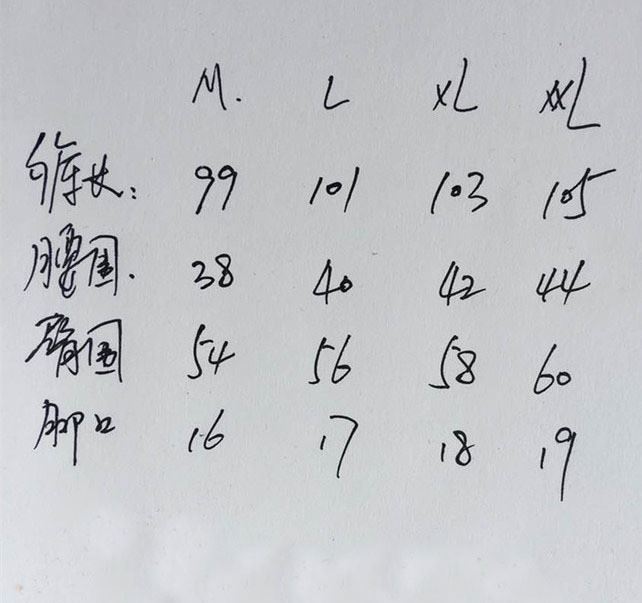 M. L XL XXL
裤长: 99 101 103 105
腰围. 38 40 42 44
臀围 54 56 58 60
脚口 16 17 18 19